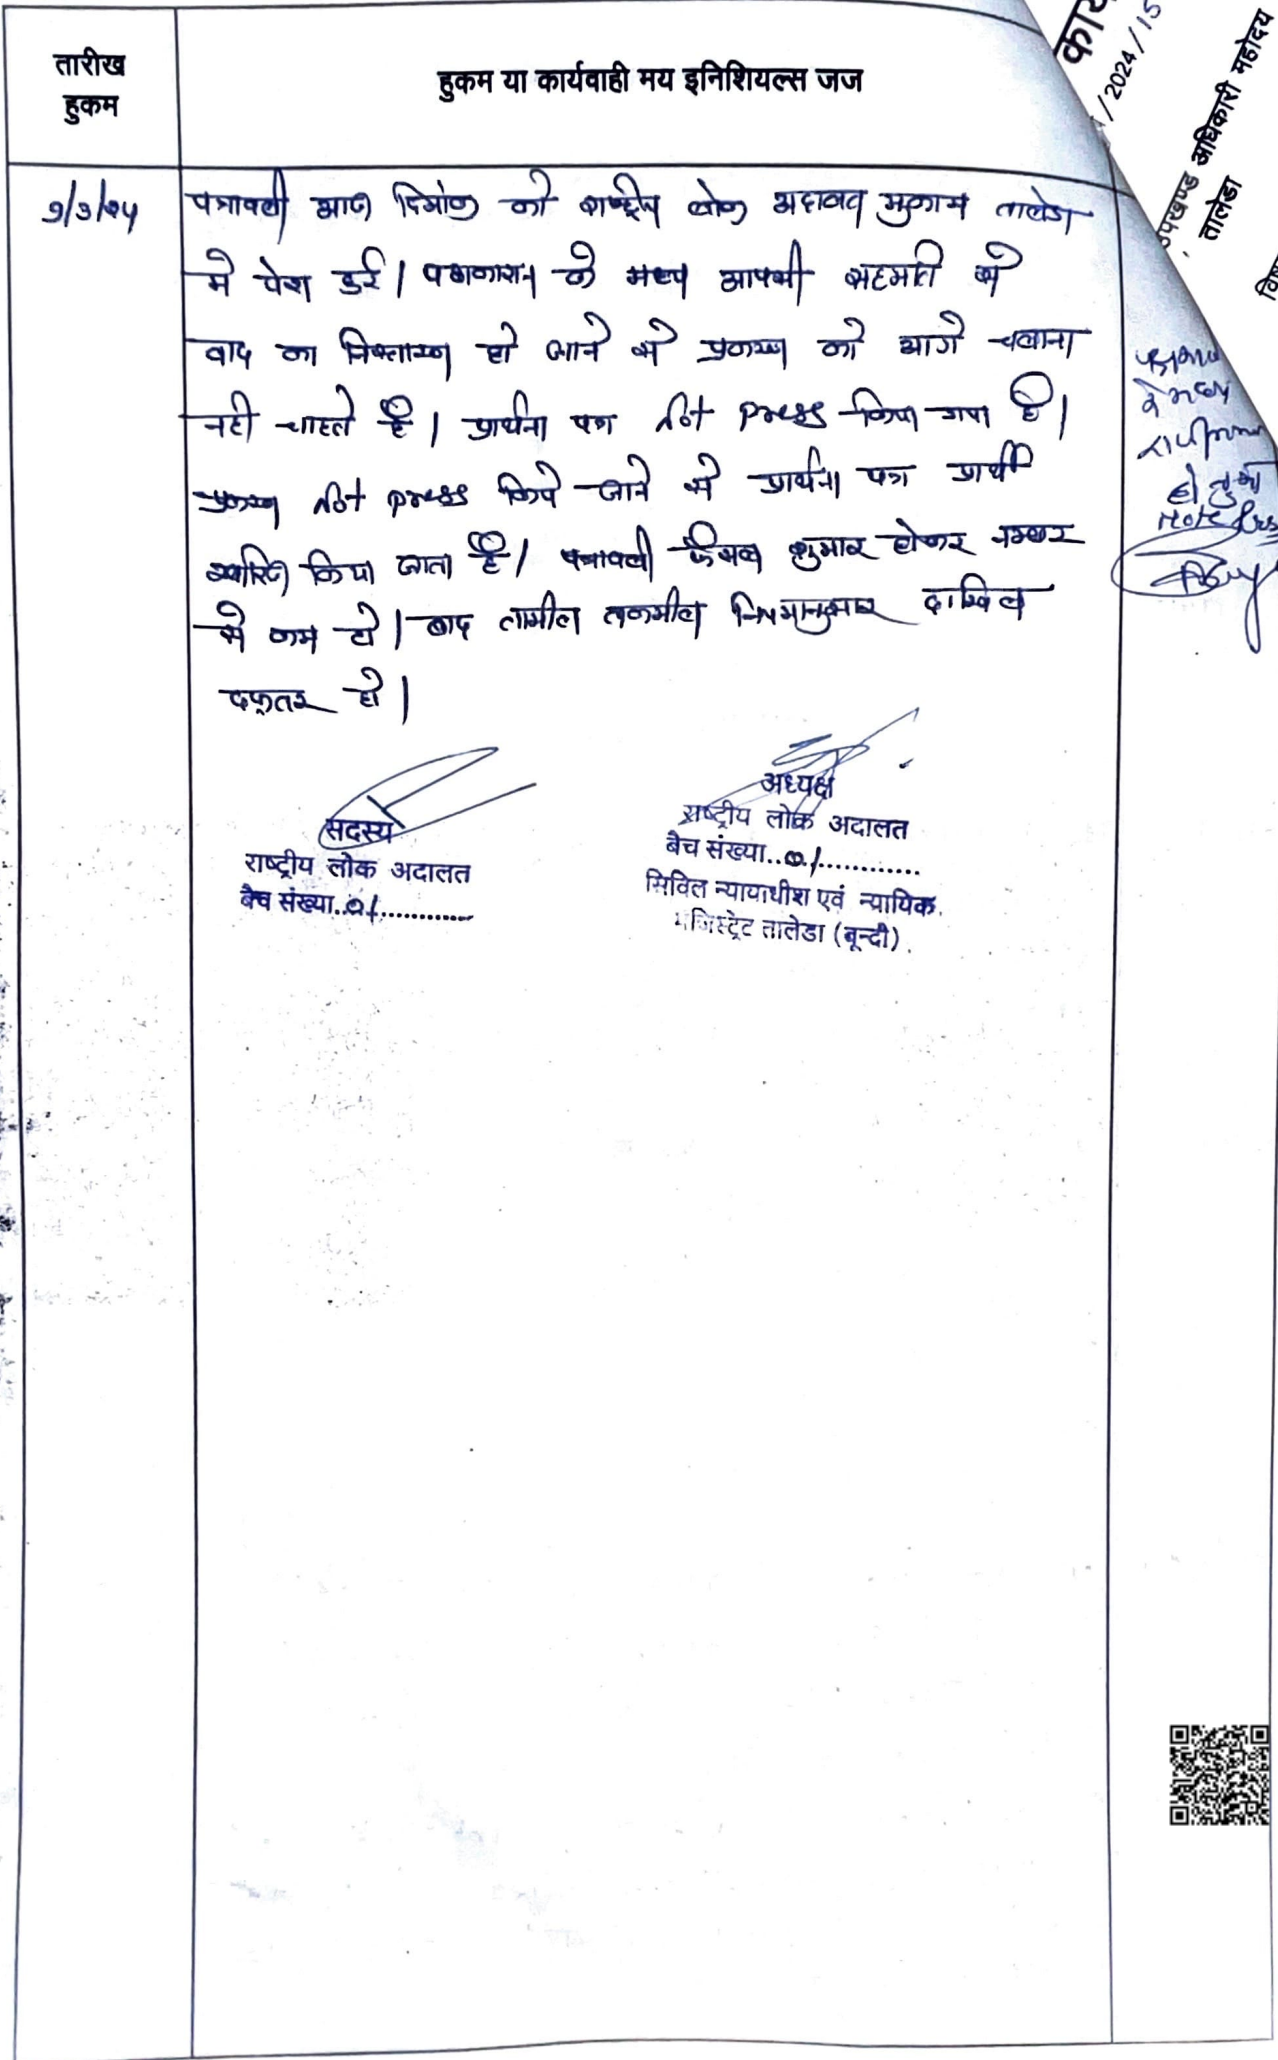 तारीख
हुकम
हुकम या कार्यवाही मय इनिशियल्स जज
/2024/15
उपखण्ड अधिकारी महोदय
तालेडा
पत्रावली आज दिनांक को राष्ट्रीय लोक अदालत मुकाम तालेडा
मे पेश हुई। पक्षकारान के मध्य आपसी सहमति से
वाद का निस्तारण हो जाने से प्रकरण को आगे चलाना
नही चाहते है। प्रार्थना पत्र Not press किया गया है।
प्रकरण Not press किये जाने से प्रार्थना पत्र प्रार्थी
खारिज किया जाता है। पत्रावली फैसल शुमार होकर नम्बर
से कम हो। बाद तामील तकमील नियमानुसार दाखिल
दफ्तर हो।
के मध्य
राजीनामा
हो चुका
Note press
सदस्य
राष्ट्रीय लोक अदालत
बैंच संख्या..01............
अध्यक्ष
राष्ट्रीय लोक अदालत
बैच संख्या..01.............
सिविल न्यायाधीश एवं न्यायिक
मजिस्ट्रेट तालेडा (बून्दी)